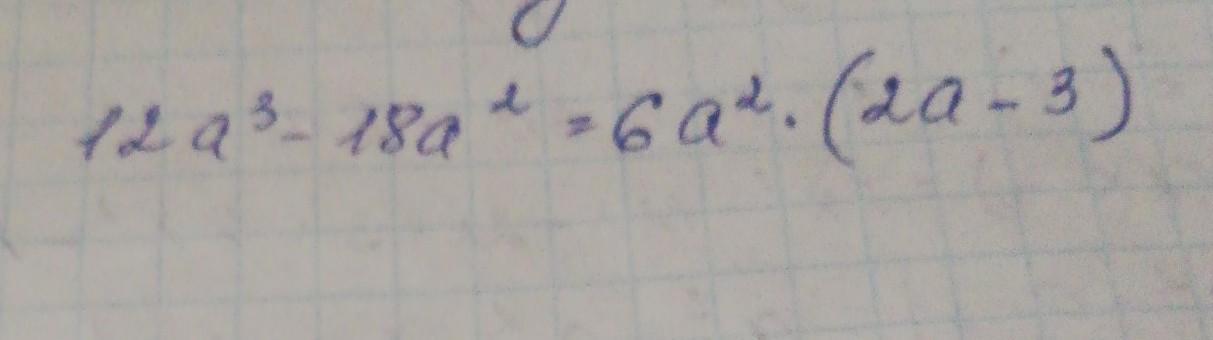 12a³ - 18a² = 6a² · (2a - 3)